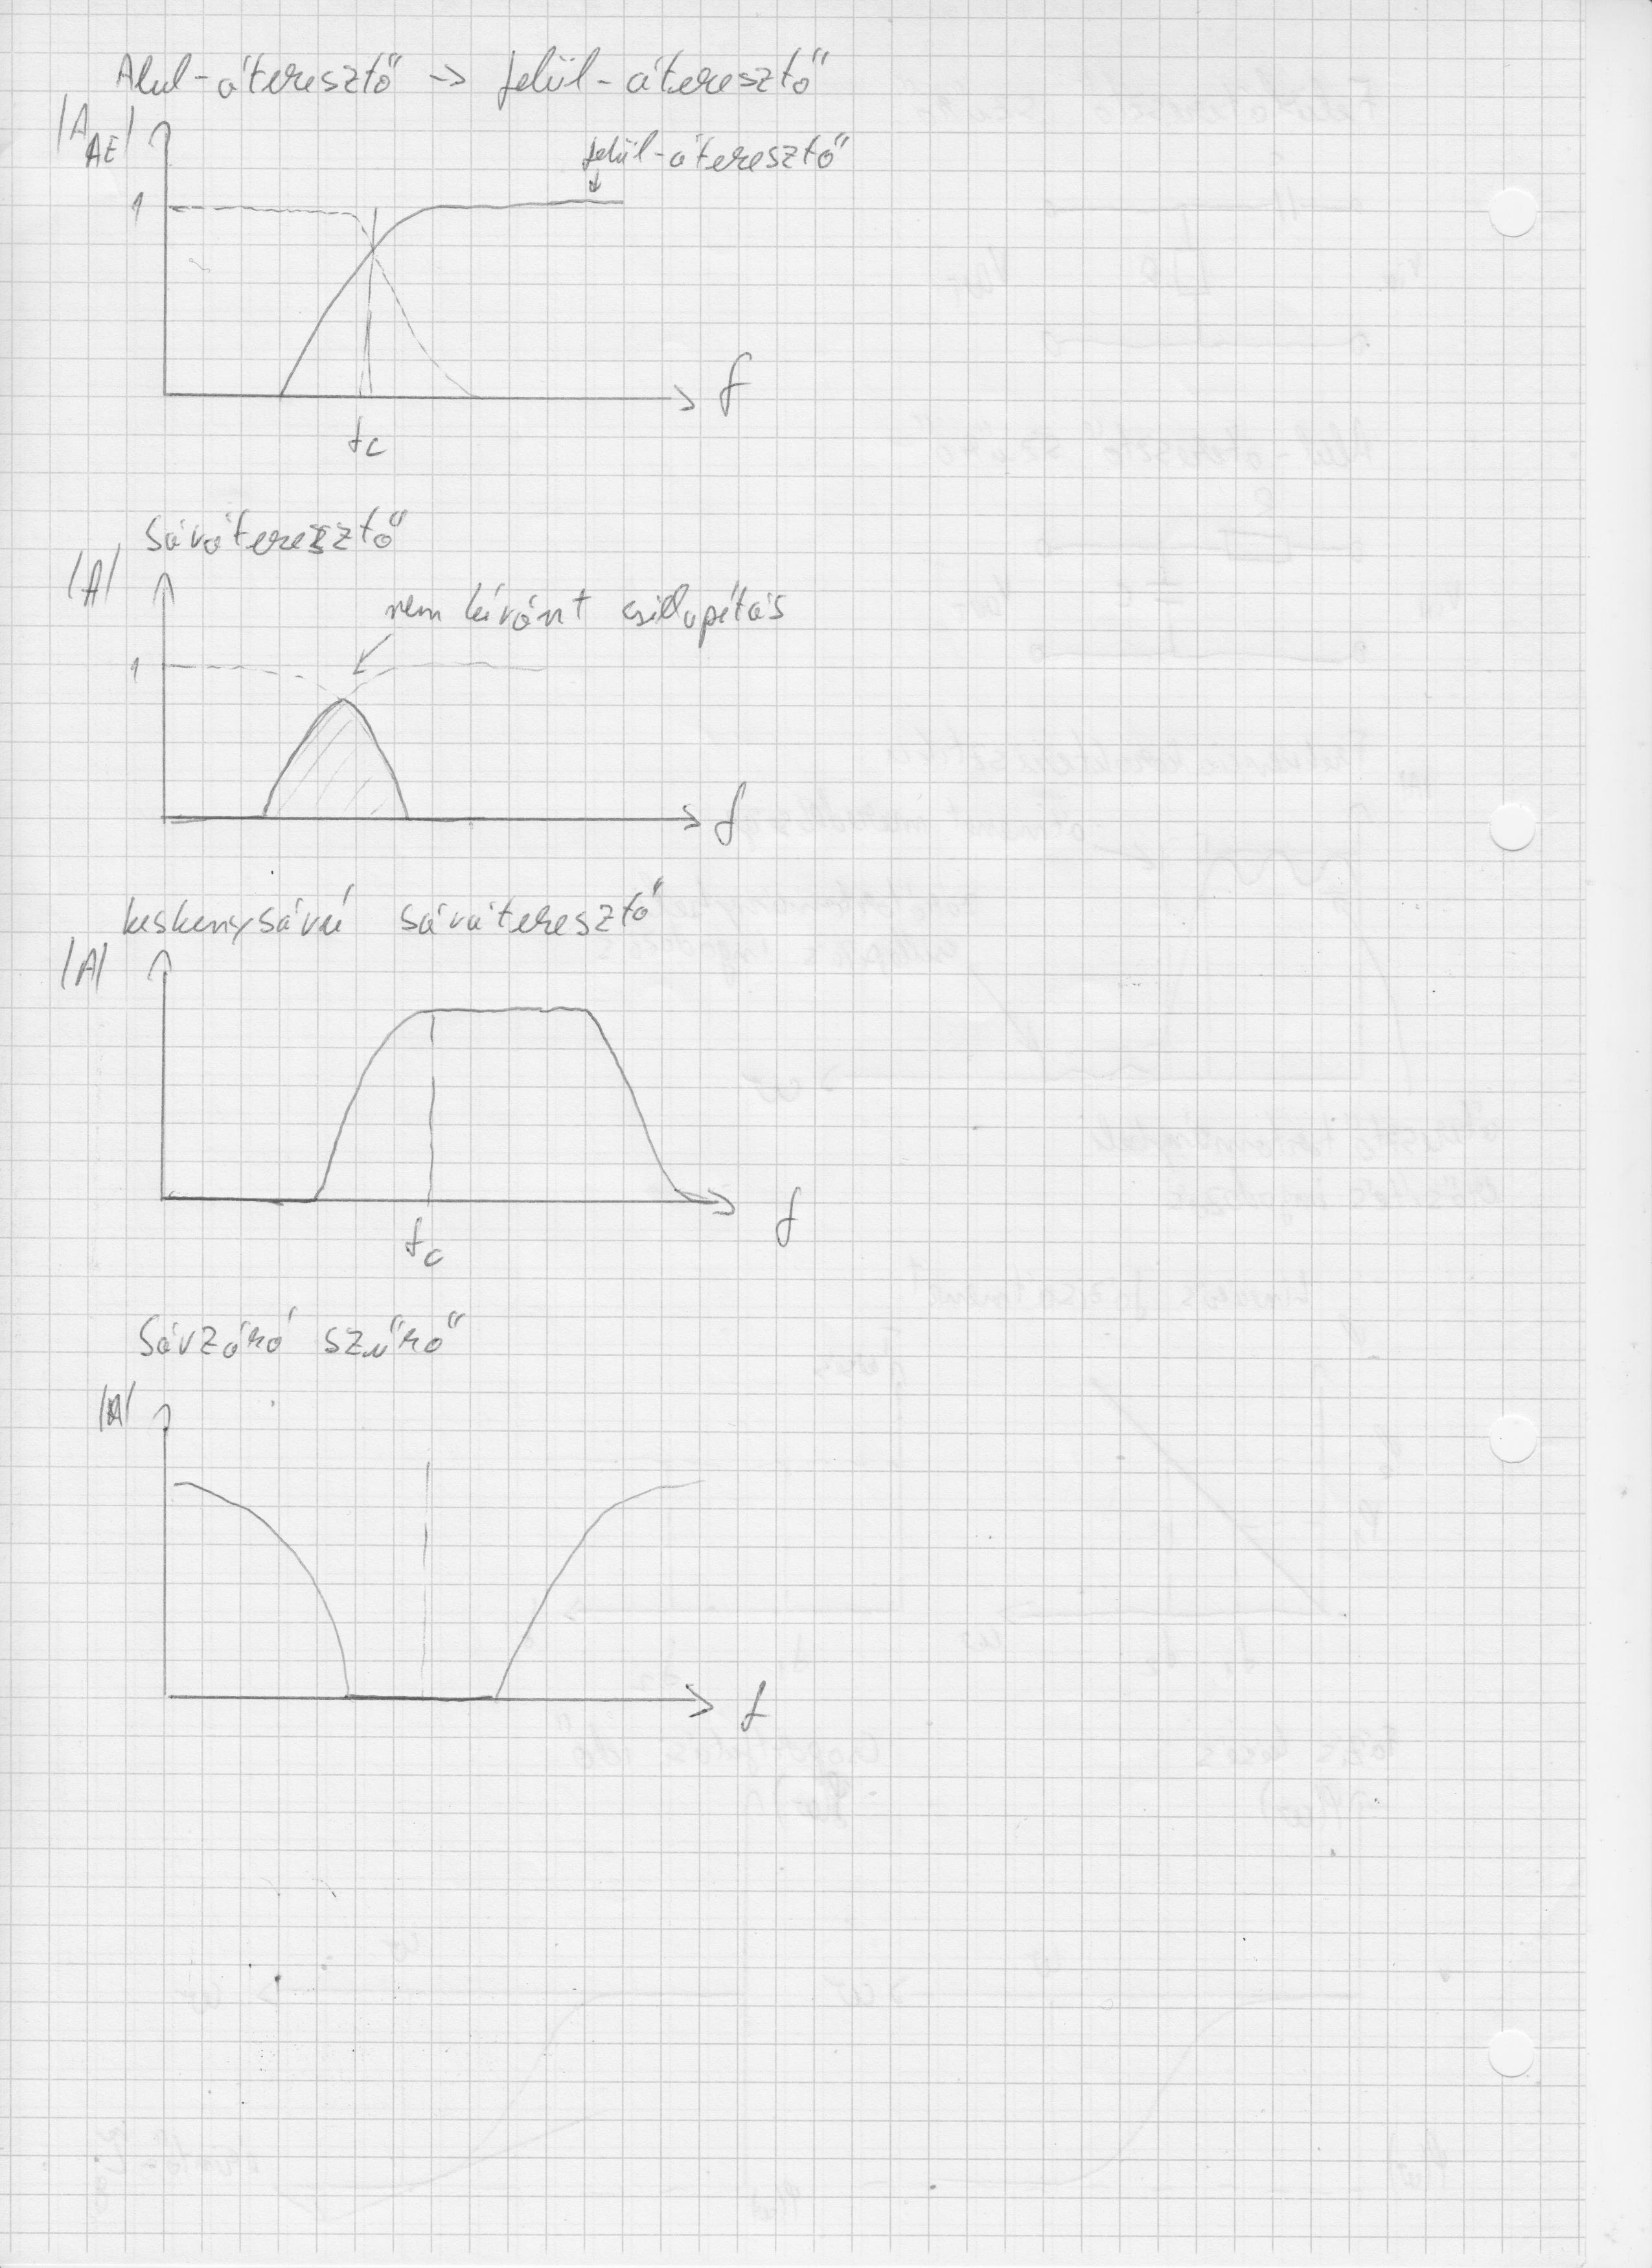 Alul-áteresztő -> felül-áteresztő
|A_AE|
felül-áteresztő
1
f
fc
Sáváteresztő
|A|
nem kívánt csillapítás
1
f
keskenysávú sáváteresztő
|A|
f
fc
Sávzáró szűrő
|A|
f